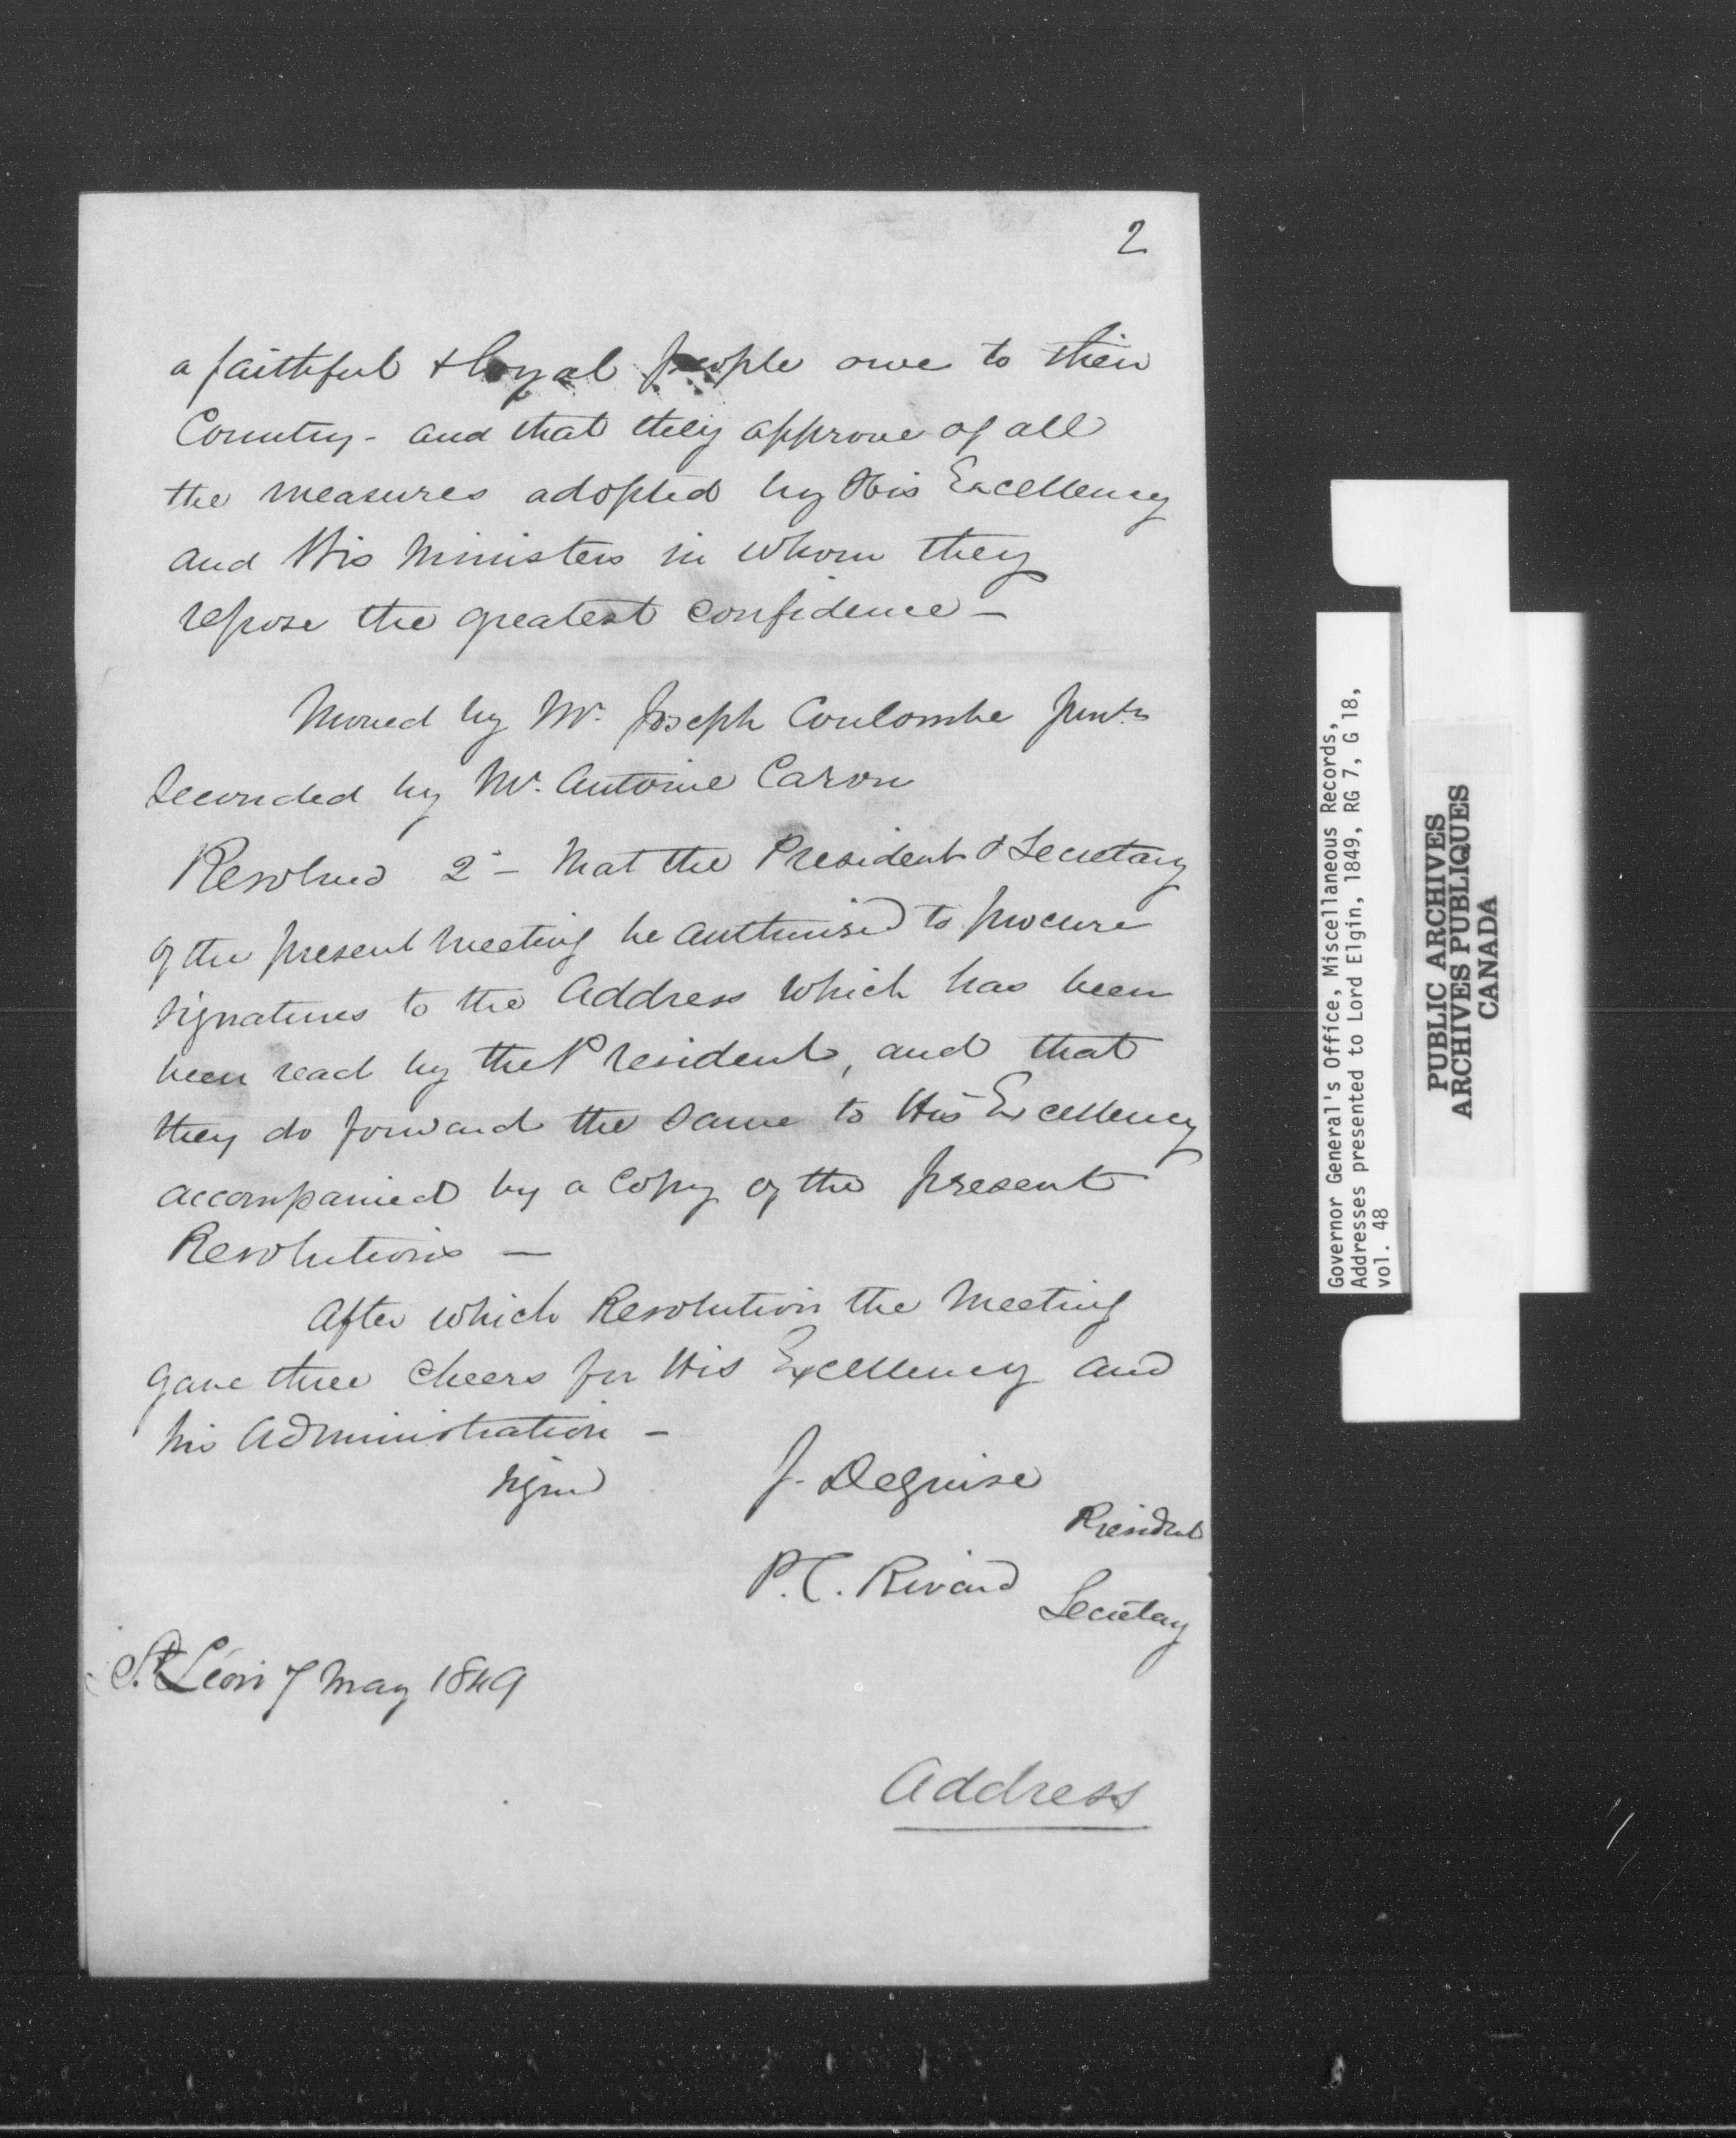 2
a faithful & loyal people owe to their
Country - and that they approve of all
the measures adopted by His Excellency
and His Ministers in whom they
repose the greatest confidence -
Moved by Mr. Joseph Coulombe
Seconded by Mr. Antoine Caron
Resolved 2 - That the President & Secretary
of the present meeting be authorised to procure
signatures to the Address which has been
been read by the President, and that
they do forward the same to His Excellency
accompanied by a Copy of the present
Resolutions -
After which Resolution the Meeting
gave three cheers for His Excellency and
his Administration -
signed J. Deguise
President
P. C. Rivard Secretary
St Léon 7 May 1849
Address
Governor General's Office, Miscellaneous Records,
Addresses presented to Lord Elgin, 1849, RG 7, G 18,
vol. 48
PUBLIC ARCHIVES
ARCHIVES PUBLIQUES
CANADA